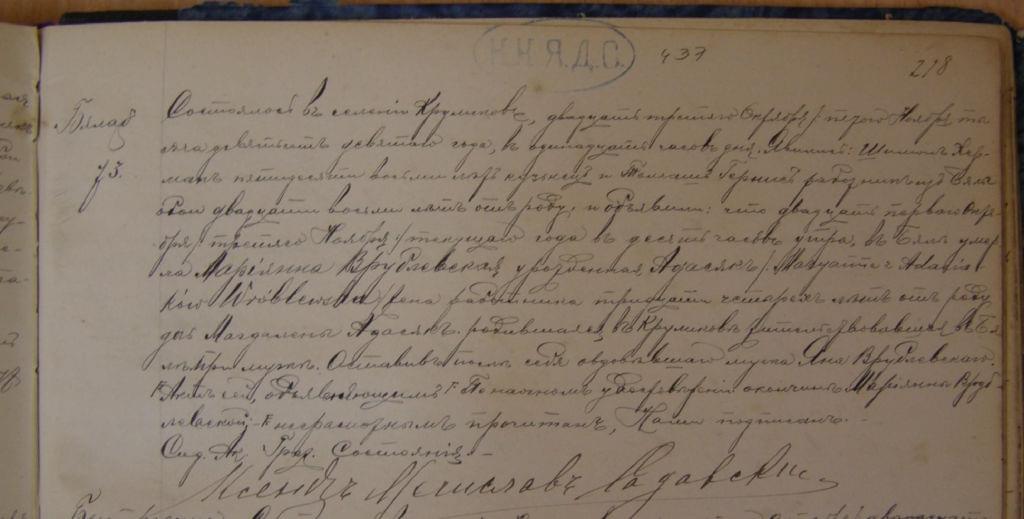 Н.Н.Я.Д.С. 437 218
Бялая
73.
Состоялось въ селеніи Круликовѣ, двадцать третьяго Октября / пятаго Ноября ты-
сяча девятьсотъ девятаго года, въ одинадцать часовъ дня. Явились: Шимонъ Хер-
манъ пятидесяти восьми лѣтъ кузнецъ и
двадцати восьми лѣтъ отъ роду, и объявили: что двадцать перваго Октя-
бря / третьяго Ноября / текущаго года въ десять часовъ утра, въ Бялъ умер-
ла Маріянна Врублевская урожденная Адасякъ / Maryanna z Adasia-
ków Wróblewska / жена работника тридцати четырехъ лѣтъ отъ роду
дочь Магдалены Адасякъ. родившаяся въ Круликовѣ жительствовавшая въ Бя-
лъ при мужѣ. Оставивъ послѣ себя овдовѣвшаго мужа Яна Врублевскаго.
Актъ сей, объявляющимъ По настоящемъ удостовѣреніи о кончинѣ Маріянны Вруб-
левской; неграмотнымъ прочитанъ, Нами подписанъ.
Сод. Ак. Граж. Состоянія.
Ксендзъ Мечиславъ Садовскі